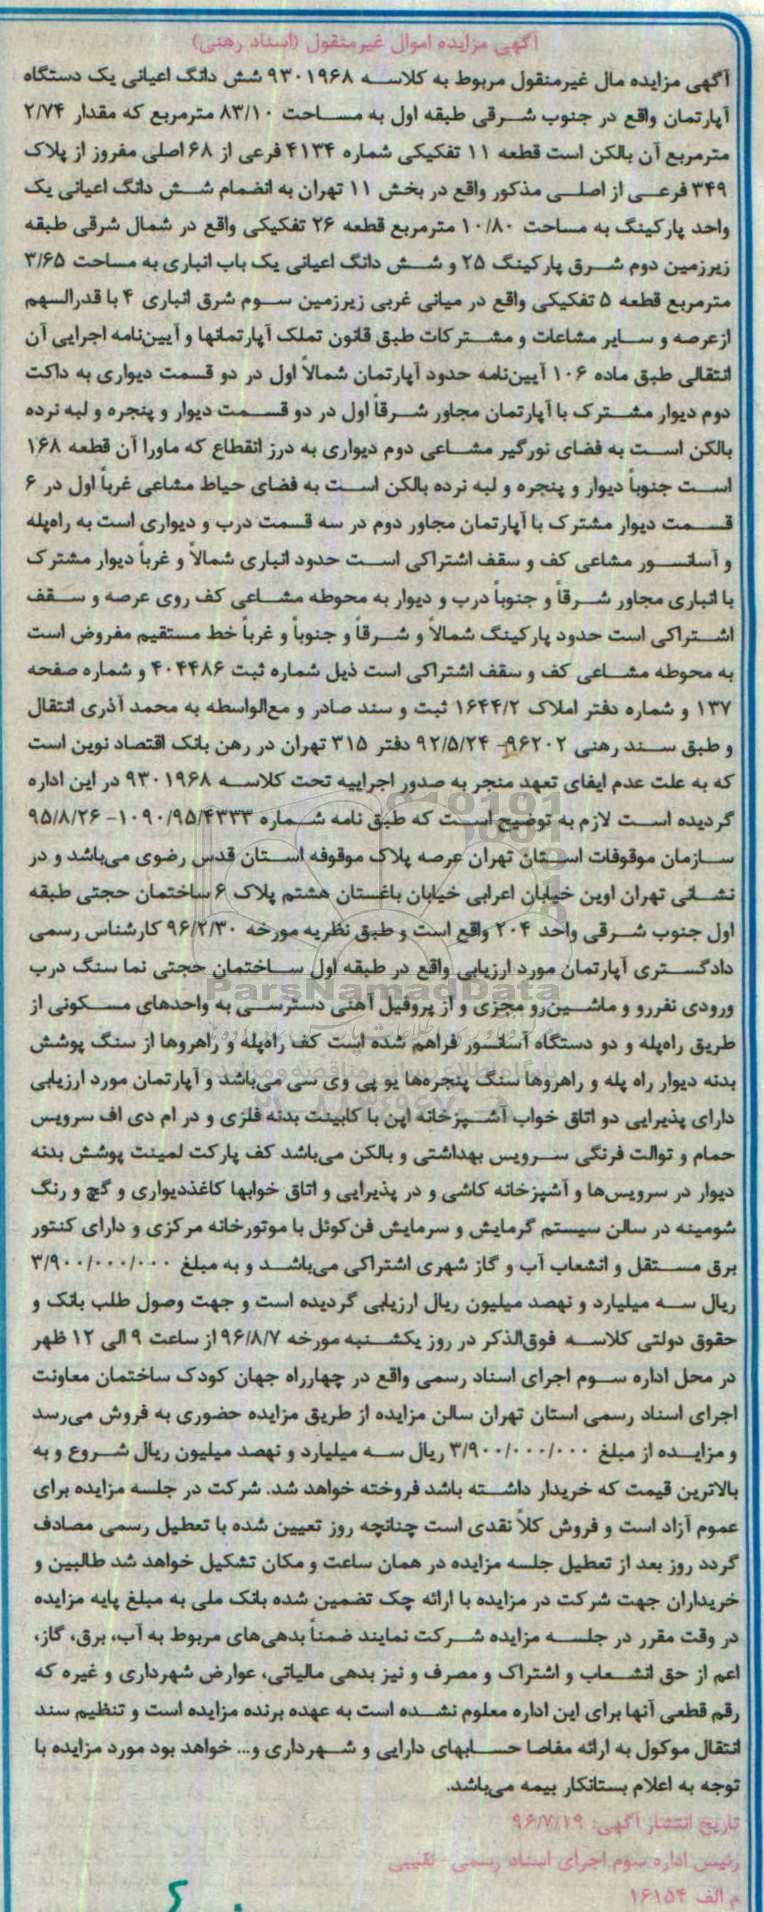 آگهی مزایده اموال غیرمنقول (اسناد رهنی)
آگهی مزایده مال غیرمنقول مربوط به کلاسه ۹۳۰۱۹۶۸ شش دانگ اعیانی یک دستگاه
آپارتمان واقع در جنوب شرقی طبقه اول به مساحت ۸۳/۱۰ مترمربع که مقدار ۲/۷۴
مترمربع آن بالکن است قطعه ۱۱ تفکیکی شماره ۴۱۳۴ فرعی از ۶۸ اصلی مفروز از پلاک
۳۴۹ فرعی از اصلی مذکور واقع در بخش ۱۱ تهران به انضمام شش دانگ اعیانی یک
واحد پارکینگ به مساحت ۱۰/۸۰ مترمربع قطعه ۲۶ تفکیکی واقع در شمال شرقی طبقه
زیرزمین دوم شرق پارکینگ ۲۵ و شش دانگ اعیانی یک باب انباری به مساحت ۳/۶۵
مترمربع قطعه ۵ تفکیکی واقع در میانی غربی زیرزمین سوم شرق انباری ۴ با قدرالسهم
ازعرصه و سایر مشاعات و مشترکات طبق قانون تملک آپارتمانها و آیین‌نامه اجرایی آن
انتقالی طبق ماده ۱۰۶ آیین‌نامه حدود آپارتمان شمالاً اول در دو قسمت دیواری به داکت
دوم دیوار مشترک با آپارتمان مجاور شرقاً اول در دو قسمت دیوار و پنجره و لبه نرده
بالکن است به فضای نورگیر مشاعی دوم دیواری به درز انقطاع که ماورا آن قطعه ۱۶۸
است جنوباً دیوار و پنجره و لبه نرده بالکن است به فضای حیاط مشاعی غرباً اول در ۶
قسمت دیوار مشترک با آپارتمان مجاور دوم در سه قسمت درب و دیواری است به راه‌پله
و آسانسور مشاعی کف و سقف اشتراکی است حدود انباری شمالاً و غرباً دیوار مشترک
با انباری مجاور شرقاً و جنوباً درب و دیوار به محوطه مشاعی کف روی عرصه و سقف
اشتراکی است حدود پارکینگ شمالاً و شرقاً و جنوباً و غرباً خط مستقیم مفروض است
به محوطه مشاعی کف و سقف اشتراکی است ذیل شماره ثبت ۴۰۴۴۸۶ و شماره صفحه
۱۳۷ و شماره دفتر املاک ۱۶۴۴/۲ ثبت و سند صادر و مع‌الواسطه به محمد آذری انتقال
و طبق سند رهنی ۹۶۲۰۲- ۹۲/۵/۲۴ دفتر ۳۱۵ تهران در رهن بانک اقتصاد نوین است
که به علت عدم ایفای تعهد منجر به صدور اجراییه تحت کلاسه ۹۳۰۱۹۶۸ در این اداره
گردیده است لازم به توضیح است که طبق نامه شماره ۱۰۹۰/۹۵/۴۳۳۳- ۹۵/۸/۲۶
سازمان موقوفات استان تهران عرصه پلاک موقوفه استان قدس رضوی می‌باشد و در
نشانی تهران اوین خیابان اعرابی خیابان باغستان هشتم پلاک ۶ ساختمان حجتی طبقه
اول جنوب شرقی واحد ۲۰۴ واقع است و طبق نظریه مورخه ۹۶/۲/۳۰ کارشناس رسمی
دادگستری آپارتمان مورد ارزیابی واقع در طبقه اول ساختمان حجتی نما سنگ درب
ParsNamadData
ورودی نفررو و ماشین‌رو مجزی و از پروفیل آهنی دسترسی به واحدهای مسکونی از
طریق راه‌پله و دو دستگاه آسانسور فراهم شده است کف راه‌پله و راهروها از سنگ پوشش
بدنه دیوار راه پله و راهروها سنگ پنجره‌ها یو پی وی سی می‌باشد و آپارتمان مورد ارزیابی
دارای پذیرایی دو اتاق خواب آشپزخانه اپن با کابینت بدنه فلزی و در ام دی اف سرویس
حمام و توالت فرنگی سرویس بهداشتی و بالکن می‌باشد کف پارکت لمینت پوشش بدنه
دیوار در سرویس‌ها و آشپزخانه کاشی و در پذیرایی و اتاق خوابها کاغذدیواری و گچ و رنگ
شومینه در سالن سیستم گرمایش و سرمایش فن‌کوئل با موتورخانه مرکزی و دارای کنتور
برق مستقل و انشعاب آب و گاز شهری اشتراکی می‌باشد و به مبلغ ۳/۹۰۰/۰۰۰/۰۰۰
ریال سه میلیارد و نهصد میلیون ریال ارزیابی گردیده است و جهت وصول طلب بانک و
حقوق دولتی کلاسه فوق‌الذکر در روز یکشنبه مورخه ۹۶/۸/۷ از ساعت ۹ الی ۱۲ ظهر
در محل اداره سوم اجرای اسناد رسمی واقع در چهارراه جهان کودک ساختمان معاونت
اجرای اسناد رسمی استان تهران سالن مزایده از طریق مزایده حضوری به فروش می‌رسد
و مزایده از مبلغ ۳/۹۰۰/۰۰۰/۰۰۰ ریال سه میلیارد و نهصد میلیون ریال شروع و به
بالاترین قیمت که خریدار داشته باشد فروخته خواهد شد. شرکت در جلسه مزایده برای
عموم آزاد است و فروش کلاً نقدی است چنانچه روز تعیین شده با تعطیل رسمی مصادف
گردد روز بعد از تعطیل جلسه مزایده در همان ساعت و مکان تشکیل خواهد شد طالبین و
خریداران جهت شرکت در مزایده با ارائه چک تضمین شده بانک ملی به مبلغ پایه مزایده
در وقت مقرر در جلسه مزایده شرکت نمایند ضمناً بدهی‌های مربوط به آب، برق، گاز،
اعم از حق انشعاب و اشتراک و مصرف و نیز بدهی مالیاتی، عوارض شهرداری و غیره که
رقم قطعی آنها برای این اداره معلوم نشده است به عهده برنده مزایده است و تنظیم سند
انتقال موکول به ارائه مفاصا حسابهای دارایی و شهرداری و... خواهد بود مورد مزایده با
توجه به اعلام بستانکار بیمه می‌باشد.
تاریخ انتشار آگهی: ۹۶/۷/۱۹
رئیس اداره سوم اجرای اسناد رسمی- نقیبی
م الف ۱۶۱۵۴